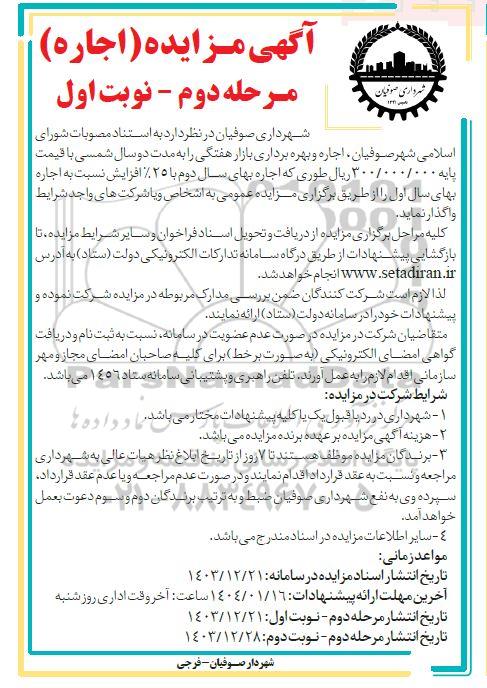 آگهی مـزایده (اجاره)
مـرحله دوم - نوبت اول
شهرداری صوفیان
شـهرداری صوفیان در نظر دارد به استناد مصوبات شورای
اسلامی شهر صوفیان، اجاره و بهره برداری بازار هفتگی را به مدت دو سال شمسی با قیمت
پایه ۳۰۰/۰۰۰/۰۰۰ ریال طوری که اجاره بهای سـال دوم با ۲۵٪ افزایش نسبت به اجاره
بهای سال اول را از طریق برگزاری مـزایده عمومی به اشخاص و یا شرکت های واجد شرایط
واگذار نماید.
کلیه مراحل برگزاری مزایده از دریافت و تحویل اسناد فراخوان و سایر شرایط مزایده، تا
بازگشایی پیشنهادات از طریق درگاه سامانه تدارکات الکترونیکی دولت (ستاد) به آدرس
www.setadiran.ir انجام خواهد شد.
لذا لازم است شرکت کنندگان ضمن بررسی مدارک مربوطه در مزایده شرکت نموده و
پیشنهادات خود را در سامانه دولت (ستاد) ارائه نمایند.
متقاضیان شرکت در مزایده در صورت عدم عضویت در سامانه، نسبت به ثبت نام و دریافت
گواهی امضـای الکترونیکی (به صـورت بر خط) برای کلیـه صاحبان امضـای مجاز و مهر
سازمانی اقدام لازم را به عمل آورند. تلفن راهبری و پشتیبانی سامانه ستاد ۱۴۵۶ می باشد.
شرایط شرکت در مزایده:
۱- شهرداری در رد یا قبول یک یا کلیه پیشنهادات مختار می باشد.
۲- هزینه آگهی مزایده بر عهده برنده مزایده می باشد.
۳- برندگان مزایده موظف هستند تا ۷ روز از تاریخ ابلاغ نظر هیات عالی به شهرداری
مراجعه و نسبت به عقد قرارداد اقدام نمایند و در صورت عدم مراجعه و یا عدم عقد قرارداد،
سپرده وی به نفع شهرداری صوفیان ضبط و به ترتیب برندگان دوم و سوم دعوت بعمل
خواهد آمد.
۴- سایر اطلاعات مزایده در اسناد مندرج می باشد.
مواعد زمانی:
تاریخ انتشار اسناد مزایده در سامانه: ۱۴۰۳/۱۲/۲۱
آخرین مهلت ارائه پیشنهادات: ۱۴۰۴/۰۱/۱۶ ساعت: آخر وقت اداری روز شنبه
تاریخ انتشار مرحله دوم - نوبت اول: ۱۴۰۳/۱۲/۲۱
تاریخ انتشار مرحله دوم - نوبت دوم: ۱۴۰۳/۱۲/۲۸
شهردار صوفیان - فرجی